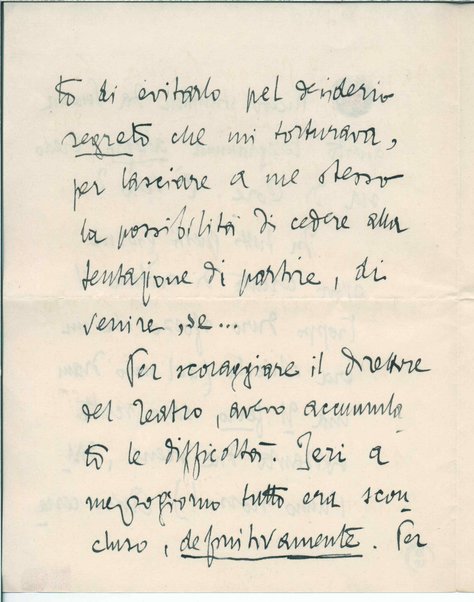 to di evitarlo pel desiderio
segreto che mi torturava,
per lasciare a me stesso
la possibilità di cedere alla
tentazione di partire, di
venire, se...
Per scoraggiare il direttore
del Teatro, avevo accumula-
to le difficoltà. Jeri a
mezzogiorno tutto era scon-
cluso, definitivamente. Per